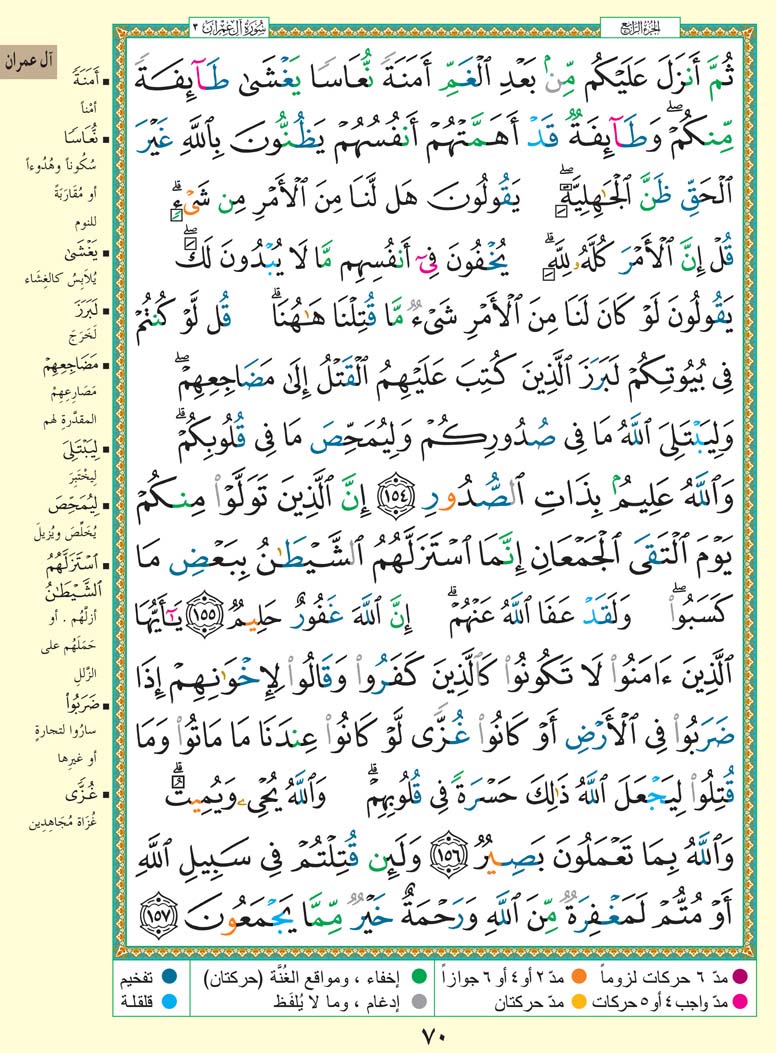 الجزء الرابع
سورة آل عمران ٣
آل عمران
ثُمَّ أَنزَلَ عَلَيْكُم مِّنۢ بَعْدِ ٱلْغَمِّ أَمَنَةً نُّعَاسًا يَغْشَىٰ طَآئِفَةً
مِّنكُمْ ۖ وَطَآئِفَةٌ قَدْ أَهَمَّتْهُمْ أَنفُسُهُمْ يَظُنُّونَ بِٱللَّهِ غَيْرَ
ٱلْحَقِّ ظَنَّ ٱلْجَٰهِلِيَّةِ ۖ يَقُولُونَ هَل لَّنَا مِنَ ٱلْأَمْرِ مِن شَىْءٍ ۗ
قُلْ إِنَّ ٱلْأَمْرَ كُلَّهُۥ لِلَّهِ ۗ يُخْفُونَ فِىٓ أَنفُسِهِم مَّا لَا يُبْدُونَ لَكَ ۖ
يَقُولُونَ لَوْ كَانَ لَنَا مِنَ ٱلْأَمْرِ شَىْءٌ مَّا قُتِلْنَا هَٰهُنَا ۗ قُل لَّوْ كُنتُمْ
فِى بُيُوتِكُمْ لَبَرَزَ ٱلَّذِينَ كُتِبَ عَلَيْهِمُ ٱلْقَتْلُ إِلَىٰ مَضَاجِعِهِمْ ۖ
وَلِيَبْتَلِىَ ٱللَّهُ مَا فِى صُدُورِكُمْ وَلِيُمَحِّصَ مَا فِى قُلُوبِكُمْ ۗ
وَٱللَّهُ عَلِيمٌۢ بِذَاتِ ٱلصُّدُورِ ١٥٤ إِنَّ ٱلَّذِينَ تَوَلَّوْا۟ مِنكُمْ
يَوْمَ ٱلْتَقَى ٱلْجَمْعَانِ إِنَّمَا ٱسْتَزَلَّهُمُ ٱلشَّيْطَٰنُ بِبَعْضِ مَا
كَسَبُوا۟ ۖ وَلَقَدْ عَفَا ٱللَّهُ عَنْهُمْ ۗ إِنَّ ٱللَّهَ غَفُورٌ حَلِيمٌ ١٥٥ يَٰٓأَيُّهَا
ٱلَّذِينَ ءَامَنُوا۟ لَا تَكُونُوا۟ كَٱلَّذِينَ كَفَرُوا۟ وَقَالُوا۟ لِإِخْوَٰنِهِمْ إِذَا
ضَرَبُوا۟ فِى ٱلْأَرْضِ أَوْ كَانُوا۟ غُزًّى لَّوْ كَانُوا۟ عِندَنَا مَا مَاتُوا۟ وَمَا
قُتِلُوا۟ لِيَجْعَلَ ٱللَّهُ ذَٰلِكَ حَسْرَةً فِى قُلُوبِهِمْ ۗ وَٱللَّهُ يُحْىِۦ وَيُمِيتُ ۗ
وَٱللَّهُ بِمَا تَعْمَلُونَ بَصِيرٌ ١٥٦ وَلَئِن قُتِلْتُمْ فِى سَبِيلِ ٱللَّهِ
أَوْ مُتُّمْ لَمَغْفِرَةٌ مِّنَ ٱللَّهِ وَرَحْمَةٌ خَيْرٌ مِّمَّا يَجْمَعُونَ ١٥٧
أَمَنَةً
أمْناً
نُّعَاسًا
سُكُوناً وهُدُوءاً
أو مُقَارَبَةً
للنوم
يَغْشَىٰ
يُلَابِسُ كالغِشَاء
لَبَرَزَ
لَخَرَجَ
مَضَاجِعِهِمْ
مَصَارِعِهِمْ
المقدّرةِ لهم
لِيَبْتَلِىَ
لِيخْتَبِرَ
لِيُمَحِّصَ
يُخَلِّصَ ويُزيلَ
ٱسْتَزَلَّهُمُ
ٱلشَّيْطَٰنُ
أزلّهُم . أو
حَمَلَهُم على
الزّللِ
ضَرَبُوا۟
سارُوا لتجارةٍ
أو غيرِها
غُزًّى
غُزَاة مُجَاهِدِين
مدّ ٦ حركات لزوماً
مدّ ٢ أو ٤ أو ٦ جوازاً
إخفاء ، ومواقع الغُنَّة (حركتان)
تفخيم
مدّ واجب ٤ أو ٥ حركات
مدّ حركتان
إدغام ، وما لا يُلفَظ
قلقلة
٧٠